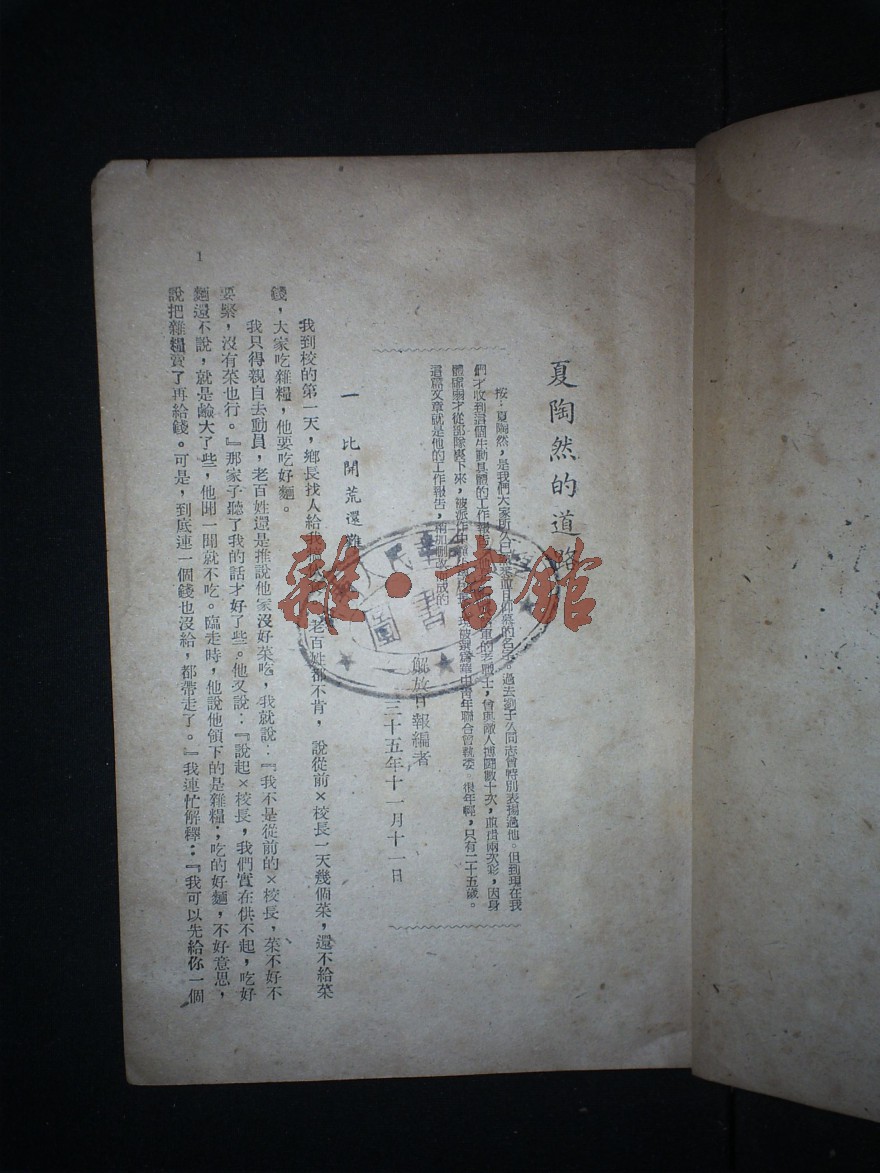 夏陶然的道路
按：夏陶然，是我們大家所
的名字。過去劉子久同志曾特別表揚過他。但到現在我
們才收到這個生動具體的工作報告
的老戰士，曾與敵人搏鬥數十次，
掛兩次彩，因身
體
才從部隊裏下來，被派作中
華中青年聯合會執委 很年輕，只有二十五歲。
這篇文章就是他的工作報告，稍加刪改
成的
解放日報編者
三十五年十一月十一日
一 比開荒還難
我到校的第一天，鄉長找人給我
老百姓都不肯，說從前×校長一天幾個菜，還不給菜
錢，大家吃雜糧，他要吃好麵。
我只得親自去動員，老百姓還是推說他家沒好菜吃，我就說：『我不是從前的×校長，菜不好不
要緊，沒有菜也行。』那家子聽了我的話才好了些。他又說：『說起×校長，我們實在供不起，吃好
麵還不說，就是鹹大了些，他聞一聞就不吃。臨走時，他說他領下的是雜糧；吃的好麵，不好意思，
說把雜糧賣了再給錢。可是，到底連一個錢也沒給，都帶走了。』我連忙解釋：『我可以先給你一個
1
雜·書館